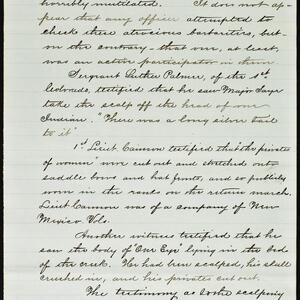 horribly mutilated. It does not ap-
pear that any officer attempted to
check these atrocious barbarities, but
on the contrary - that one, at least,
was an active participator in them
Sergeant Luther Palmer, of the 1st
Colorado, testified that he saw Major Sayr
take the scalp off the head of one
Indian. "There was a long silver tail
to it"
1st Lieut Cannon testified that the privates
of women "were cut out and stretched out
saddle bows and hat fronts, and so publicly
worn in the ranks on the return march.
Lieut Cannon was of a company of New
Mexico Vols.
Another witness testified that he
saw the body of One Eye lying in the bed
of the creek. He had been scalped, his skull
crushed in, and his privates cut out.
The testimony as to the scalping